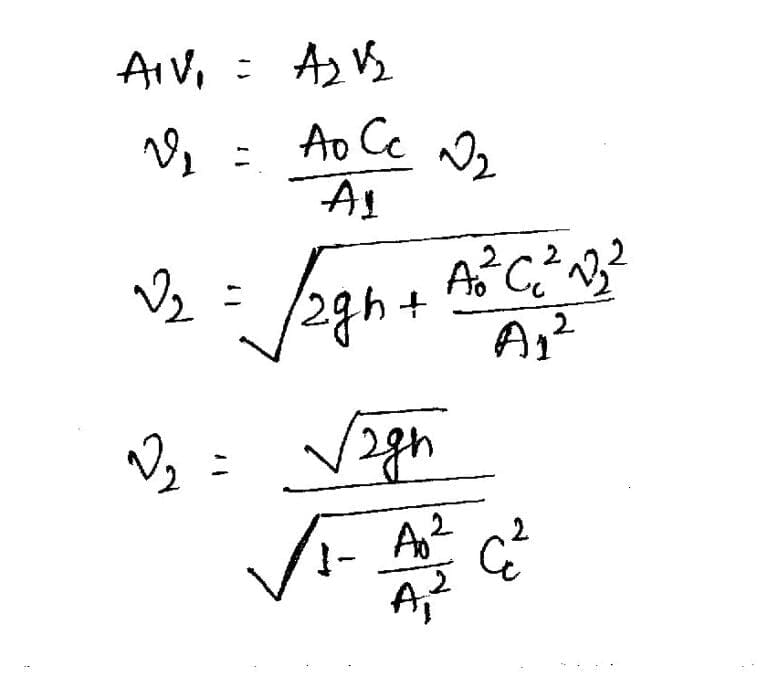 A₁V₁ = A₂V₂
v₁ = (A₀ C_c / A₁) v₂
v₂ = √(2gh + A₀² C_c² v₂² / A₁²)
v₂ = √(2gh) / √(1 - (A₀² / A₁²) C_c²)